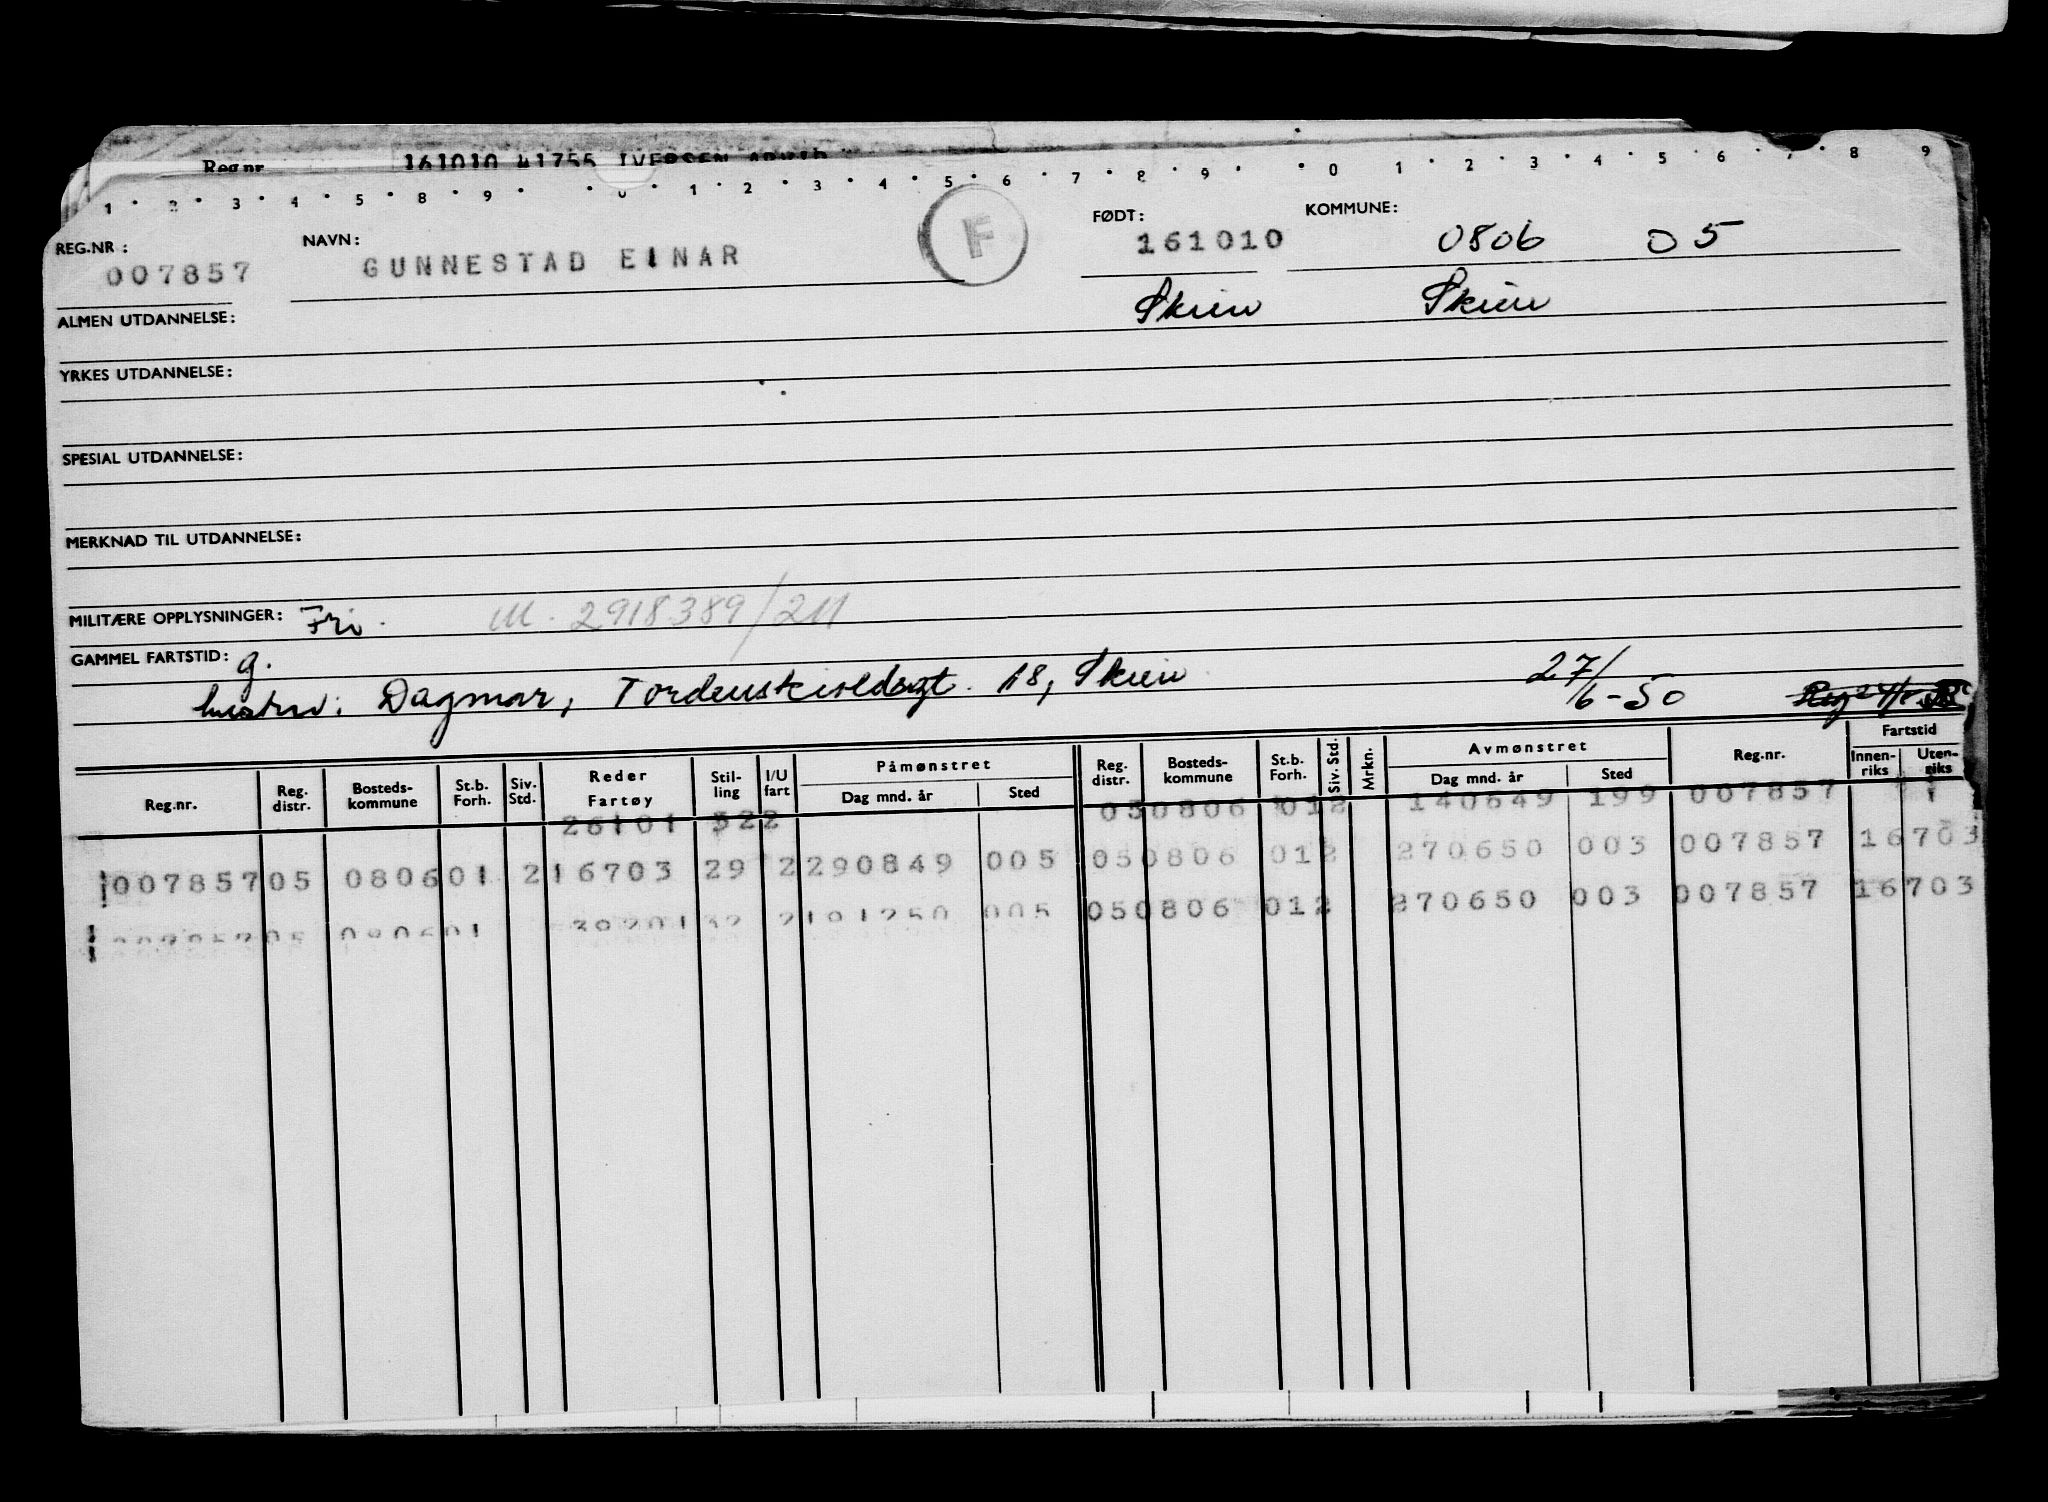 Reg.nr 161010 41755 IVERSEN ARVID
1 2 3 4 5 8 9 0 1 2 3 4 5 6 7 8 9 0 1 2 3 4 5 6 7 8 9
REG.NR: 007857 NAVN: GUNNESTAD EINAR F FØDT: 161010 KOMMUNE: 0806 05
ALMEN UTDANNELSE: Skien Skien
YRKES UTDANNELSE:
SPESIAL UTDANNELSE:
MERKNAD TIL UTDANNELSE:
MILITÆRE OPPLYSNINGER: Fri. M. 2918389/211
GAMMEL FARTSTID: g.
hustru: Dagmar, Tordenskioldsgt. 18, Skien 27/6-50
Reg.nr. Reg. distr. Bosteds-kommune St.b. Forh. Siv. Std. Reder Fartøy Stil-ling I/U fart Påmønstret Dag mnd. år Sted Reg. distr. Bosteds-kommune St.b. Forh. Siv. Std. Mrkn. Avmønstret Dag mnd. år Sted Reg.nr. Fartstid Innen-riks Uten-riks
26101 322 050806 012 140649 199 007857
007857 05 0806 01 2 16703 29 2 290849 005 050806 012 270650 003 007857 16703
007857 05 0806 01 39201 32 2 191250 005 050806 012 270650 003 007857 16703